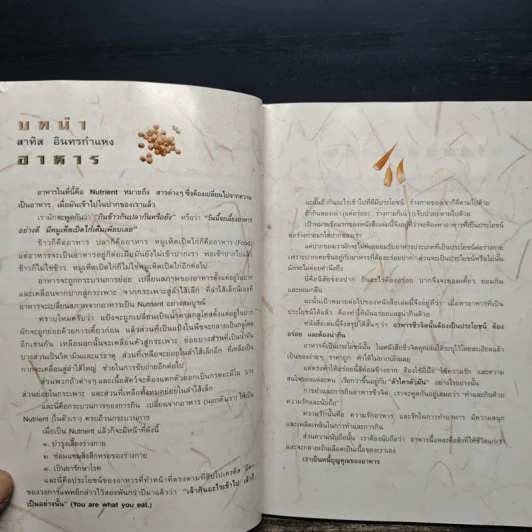 บทนำ
สาทิส อินทรกำแหง
อาหาร
อาหารในที่นี้คือ Nutrient หมายถึง สารต่างๆ ซึ่งต้องเปลี่ยนไปจากความ
เป็นอาหาร เมื่อมันเข้าไปในปากของเราแล้ว
เรามักจะพูดกันว่า "กินข้าวกินปลากันหรือยัง" หรือว่า "วันนี้จะเลี้ยงอาหาร
อย่างดี มีหมูเห็ดเป็ดไก่เต็มเพียบเลย"
ข้าวก็คืออาหาร ปลาก็คืออาหาร หมูเห็ดเป็ดไก่ก็คืออาหาร (Food)
แต่อาหารจะเป็นอาหารอยู่ก็ต่อเมื่อมันยังไม่เข้าปากเรา พอเข้าปากไปแล้ว
ข้าวก็ไม่ใช่ข้าว หมูเห็ดเป็ดไก่ก็ไม่ใช่หมูเห็ดเป็ดไก่อีกต่อไป
อาหารจะถูกกระบวนการย่อย เปลี่ยนสภาพของอาหารตั้งแต่อยู่ในปาก
และเคลื่อนจากปากสู่กระเพาะ จากกระเพาะสู่ลำไส้เล็ก ที่ลำไส้เล็กนี่เองที่
อาหารจะเปลี่ยนสภาพจากอาหารเป็น Nutrient อย่างสมบูรณ์
ทราบไหมครับว่า แป้งจะถูกเปลี่ยนเป็นน้ำตาลกลูโคสตั้งแต่อยู่ในปาก
ผักจะถูกย่อยด้วยการเคี้ยวก่อน แล้วส่วนที่เป็นแป้งในพืชจะกลายเป็นกลูโคส
อีกเช่นกัน เหลือนอกนั้นจะเคลื่อนตัวสู่กระเพาะ ย่อยบางส่วนที่เป็นน้ำ
บางส่วนเป็นวิตามินและแร่ธาตุ ส่วนที่เหลือจะย่อยในลำไส้เล็กอีก ที่เหลือเป็น
กากจะเคลื่อนสู่ลำไส้ใหญ่ ช่วยในการขับถ่ายอีกต่อไป
ส่วนพวกถั่วต่างๆ และเนื้อสัตว์จะต้องแตกตัวออกเป็นกรดอะมิโน บาง
ส่วนย่อยในกระเพาะ และส่วนที่เหลือทั้งหมดย่อยในลำไส้เล็ก
และนี่คือกระบวนการของการกิน เปลี่ยนจากอาหาร (นอกตัวเรา) ให้เป็น
Nutrient (ในตัวเรา) ครบถ้วนกระบวนการ
เมื่อเป็น Nutrient แล้วก็จะมีหน้าที่ดังนี้
๑. บำรุงเลี้ยงร่างกาย
๒. ซ่อมแซมสิ่งสึกหรอของร่างกาย
๓. เป็นยารักษาโรค
และนี่คือประโยชน์ของอาหารที่ทำหน้าที่ตรงตามที่ฮิปโปเครติส บิดา
ของวงการแพทย์กล่าวไว้สองพันกว่าปีมาแล้วว่า "เจ้ากินอะไรเข้าไป เจ้าก็
เป็นอย่างนั้น" (You are what you eat.)
ฉะนั้นถ้ากินอะไรเข้าไปที่ดีมีประโยชน์ ร่างกายของเราก็ดีตามไปด้วย
ถ้ากินของเน่า (แต่อร่อย) ร่างกายก็เน่า (เจ็บป่วย) ตามไปด้วย
เป้าหมายข้อแรกของหนังสือเล่มนี้จึงอยู่ที่ว่าจะต้องหาอาหารที่เป็นประโยชน์
ต่อร่างกายมาใส่ปากของเรา
แต่ปากของเรามักจะไม่ค่อยยอมรับอาหารประเภทที่เป็นประโยชน์ต่อร่างกาย
เพราะปากเคยชินอยู่กับอาหารที่ต้องอร่อยปาก ส่วนจะเป็นประโยชน์หรือไม่นั้น
มักจะไม่ค่อยคำนึงถึง
นี่คือนิสัยของปาก กินอะไรต้องอร่อยปาก ปากจึงจะยอมเคี้ยว ยอมกิน
และยอมกลืน
ฉะนั้นเป้าหมายต่อไปของหนังสือเล่มนี้จึงอยู่ที่ว่า เมื่อหาอาหารที่เป็น
ประโยชน์ได้แล้ว ต้องทำให้มันอร่อยและน่ากินด้วย
หนังสือเล่มนี้จึงสรุปได้สั้นๆ ว่า อาหารชีวจิตนั้นต้องเป็นประโยชน์ ต้อง
อร่อย และต้องน่ากิน
อาหารที่เป็นประโยชน์นั้น ในหนังสือชีวจิตทุกเล่มได้ระบุไว้โดยละเอียดแล้ว
เป็นของง่ายๆ ราคาถูก ทำได้ไม่ยากเย็นเลย
แต่ตรงทำให้อร่อยนี่สิค่อนข้างยาก ต้องใช้ฝีมือ ใช้ความรัก และความ
สนใจของแต่ละคน เรียกว่าขึ้นอยู่กับ "ตัวใครตัวมัน" อย่างไรอย่างนั้น
การทำและการกินอาหารชีวจิต เราจะพูดกันอยู่เสมอว่า "ทำและกินด้วย
ความรักและนับถือ"
ความรักนั้นคือ ความรักอาหาร และรักในการทำอาหาร มีความสนุก
และเพลิดเพลินในการทำและการกิน
ส่วนความนับถือนั้น เราต้องนับถือว่า อาหารนี้แหละคือสิ่งที่ให้ชีวิตแก่เรา
และจะกลายเป็นเลือดเป็นเนื้อของเราเอง
เราเป็นหนี้บุญคุณของอาหาร